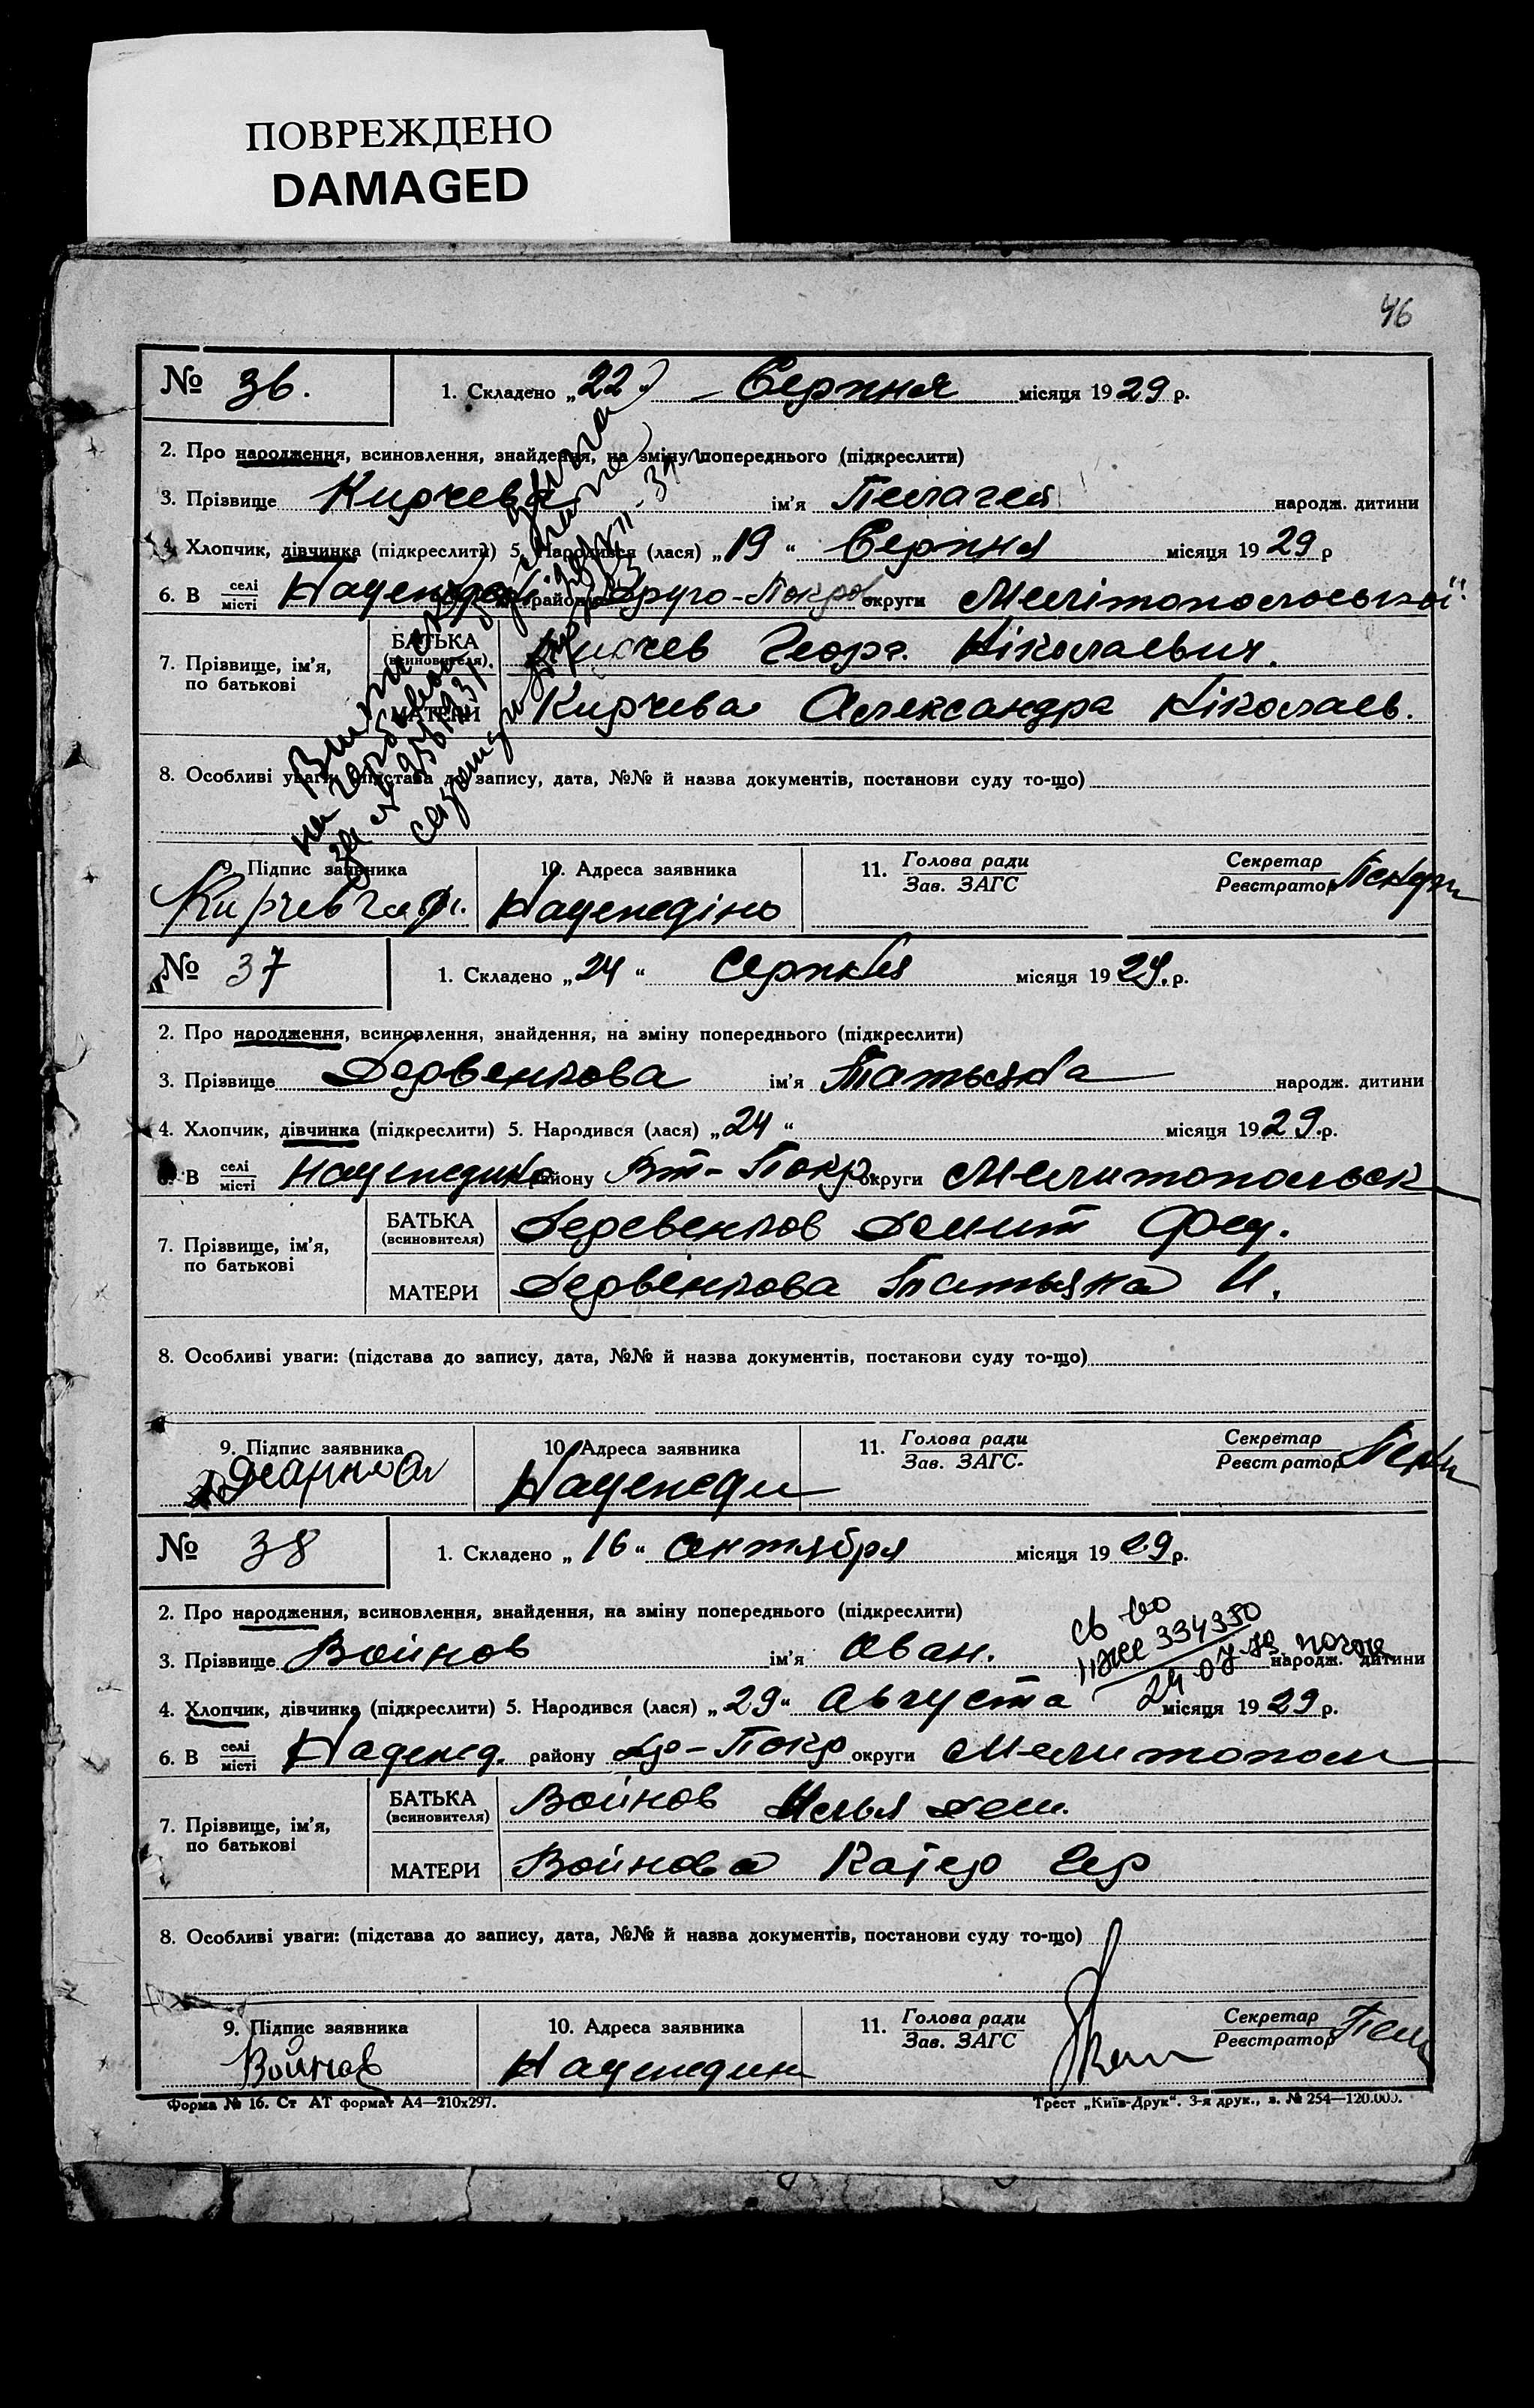 ПОВРЕЖДЕНО
DAMAGED
46
№ 36. 1. Складено „22“ Серпня місяця 1929 р.
2. Про народження, всиновлення, знайдення, на зміну попереднього (підкреслити)
3. Прізвище Кирчева ім'я Пелагея народж. дитини
4. Хлопчик, дівчинка (підкреслити) 5. Народився (лася) „19“ Серпня місяця 1929 р
6. В селі місті району Друго-Покро округи Мелітопольської
7. Прізвище, ім'я, по батькові
БАТЬКА (всиновителя) Кирчев Георг. Ніколаевич.
МАТЕРИ Кирчева Александра Ніколаев.
8. Особливі уваги: (підстава до запису, дата, №№ й назва документів, постанови суду то-що)
9. Підпис заявника 10. Адреса заявника 11. Голова ради Зав. ЗАГС Секретар Реєстратор
Кирчев Надеждіно
№ 37 1. Складено „24“ Серпня місяця 1929. р.
2. Про народження, всиновлення, знайдення, на зміну попереднього (підкреслити)
3. Прізвище Дервенкова ім'я Татьяна народж. дитини
4. Хлопчик, дівчинка (підкреслити) 5. Народився (лася) „24“ місяця 1929. р.
6. В селі місті Надеждино району Вт-Покр. округи Мелитопольск
7. Прізвище, ім'я, по батькові
БАТЬКА (всиновителя) Деревенков Фед.
МАТЕРИ Дервенкова Татьяна И.
8. Особливі уваги: (підстава до запису, дата, №№ й назва документів, постанови суду то-що)
9. Підпис заявника 10. Адреса заявника 11. Голова ради Зав. ЗАГС. Секретар Реєстратор
Надежди
№ 38 1. Складено „16“ Сентября місяця 1929 р.
2. Про народження, всиновлення, знайдення, на зміну попереднього (підкреслити)
3. Прізвище Войнов ім'я Иван. народж. дитини
334350
4. Хлопчик, дівчинка (підкреслити) 5. Народився (лася) „29“ Августа місяця 1929 р.
6. В селі місті Надежд. району Др-Покр округи Мелитопол
7. Прізвище, ім'я, по батькові
БАТЬКА (всиновителя) Войнов Илья Дем.
МАТЕРИ Войнова Катер
8. Особливі уваги: (підстава до запису, дата, №№ й назва документів, постанови суду то-що)
9. Підпис заявника 10. Адреса заявника 11. Голова ради Зав. ЗАГС Секретар Реєстратор
Войнов Надеждин
Форма № 16. Ст АТ формат А4—210х297. Трест „Київ-Друк“. 3-я друк., з. № 254—120.000.